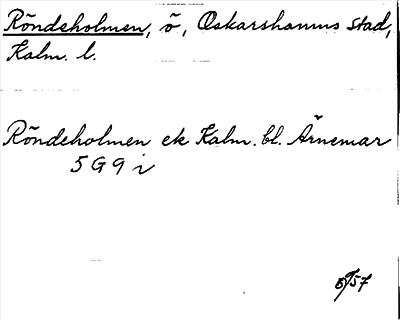 Röndeholmen, ö, Oskarshamns stad,
Kalm. l.
Röndeholmen ek Kalm. bl. Ärnemar
5 G 9 i